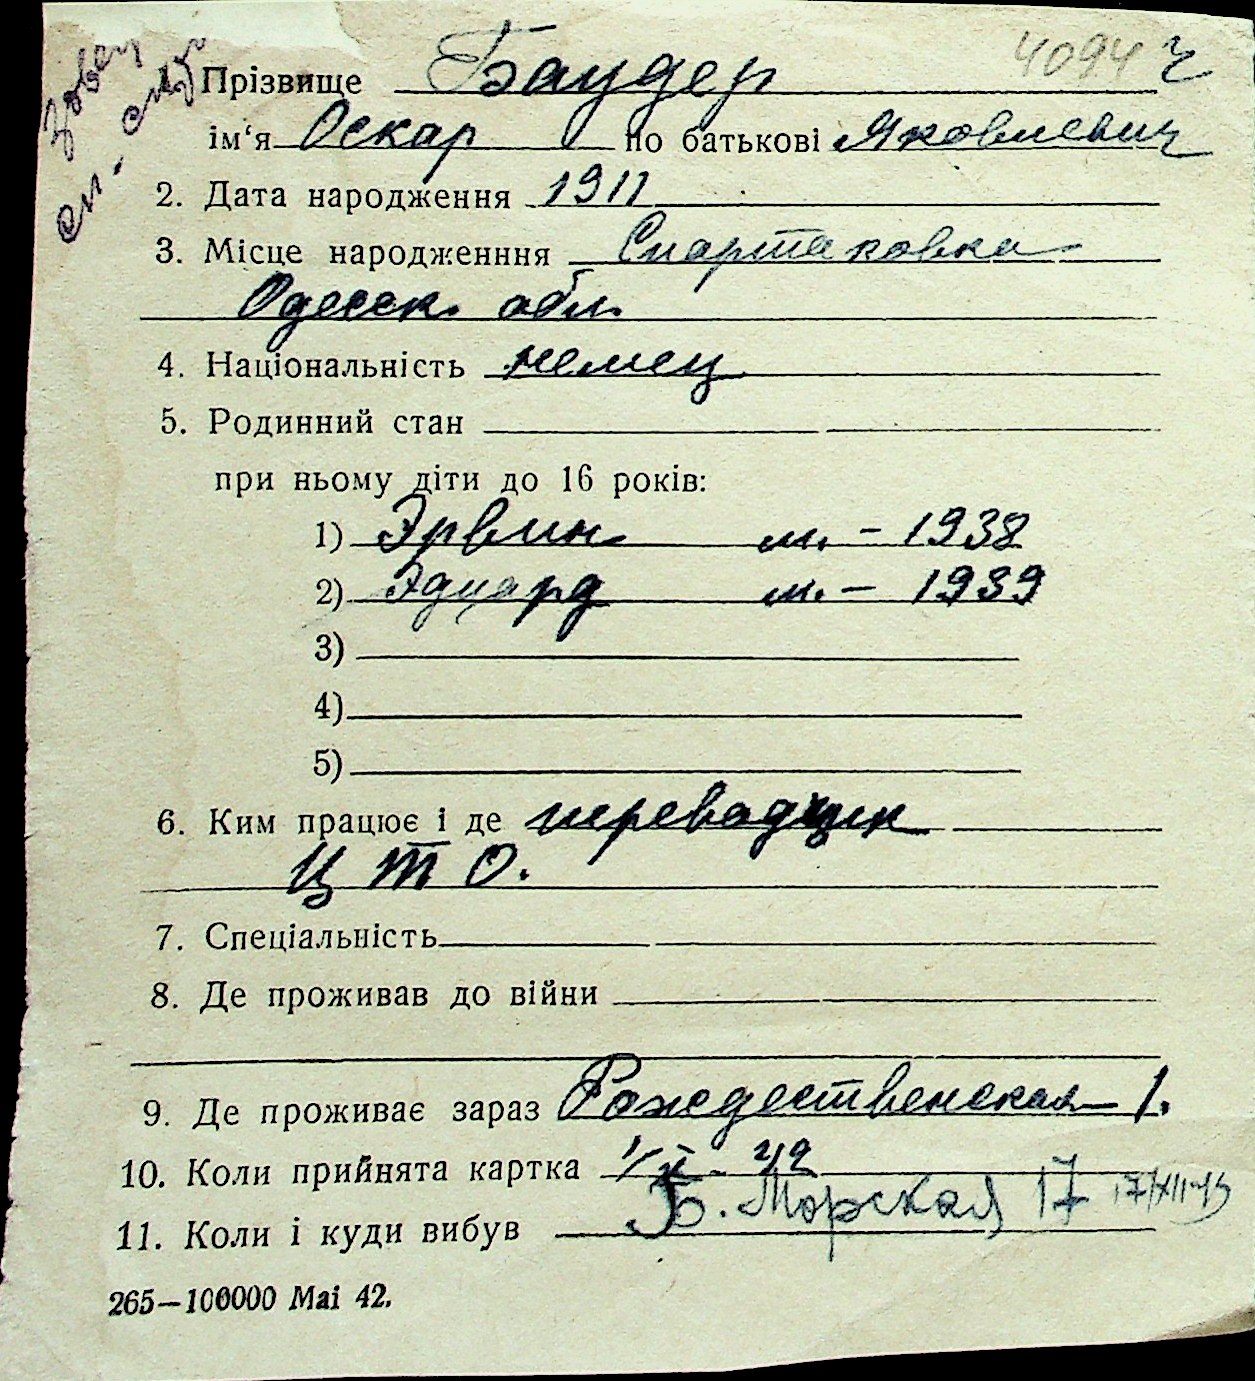 4094 ч
1. Прізвище Баудер
ім‘я Оскар по батькові Яковлевич
2. Дата народження 1911
3. Місце народженння Спартаковка
Одесск. обл.
4. Національність немец
5. Родинний стан
при ньому діти до 16 років:
1) Эрвин м. – 1938
2) Эдуард м. – 1939
3)
4)
5)
6. Ким працює і де переводчик
Ц Т О.
7. Спеціальність
8. Де проживав до війни
9. Де проживає зараз Рождественская 1.
10. Коли прийнята картка 42
Б. Морская 17 17/XII-43
11. Коли і куди вибув
265—100000 Mai 42.